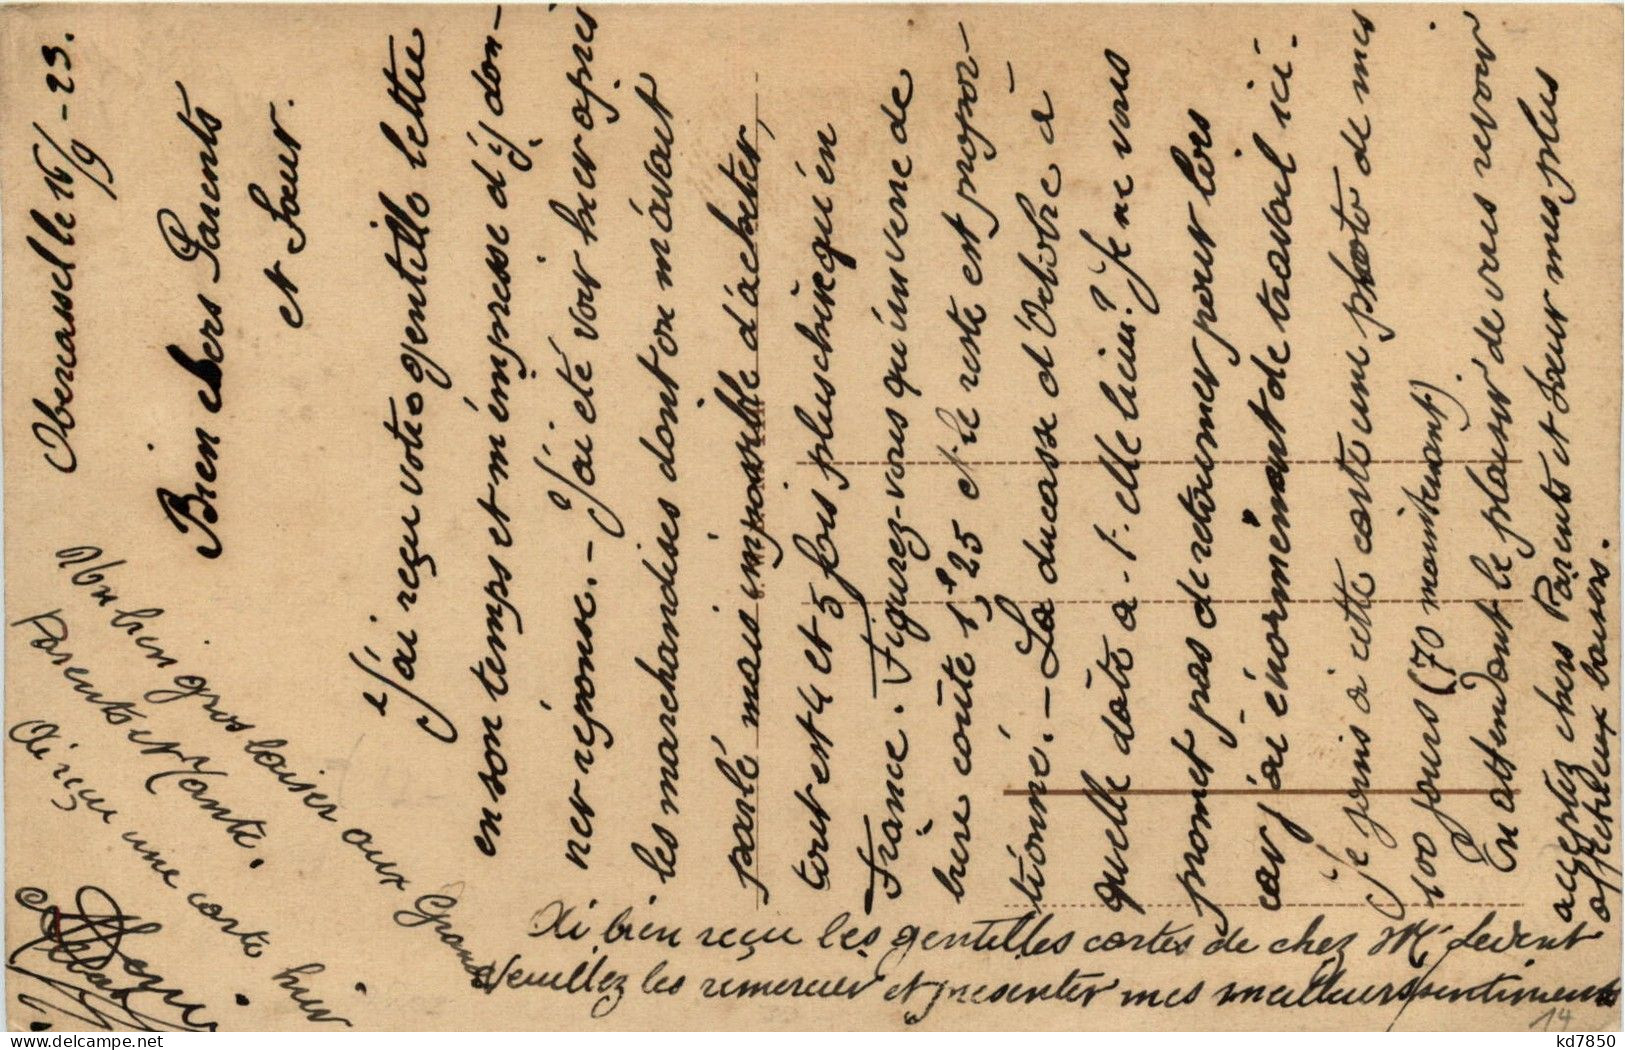 Obercassel le 16/9 - 23.
Bien chers Parents
et Sœur.
J'ai reçu votre gentille lettre
en son temps et m'empresse d'y don-
ner réponse. - J'ai été voir hier après
les marchandises dont on m'avait
parlé mais impossible d'acheter,
tout est 4 et 5 fois plus cher qu'en
France. Figurez-vous qu'un verre de
bière coûte 1f,25 et le reste est propor-
tionné. - La ducasse d'Octobre à
quelle date a-t-elle lieu? Je ne vous
promet pas de retourner pour lors
car j'ai énormément de travail ici.
Je joins à cette carte une photo de mes
100 jours (70 maintenant).
En attendant le plaisir de vous revoir
acceptez chers Parents et Sœur mes plus
affectueux baisers.
Ai bien reçu les gentilles cartes de chez Mr Levent
Veuillez les remercier et présenter mes meilleurs sentiments
Un bien gros baiser aux Grands
Parents et Tante.
Ai reçu une carte hier
14
kd7850